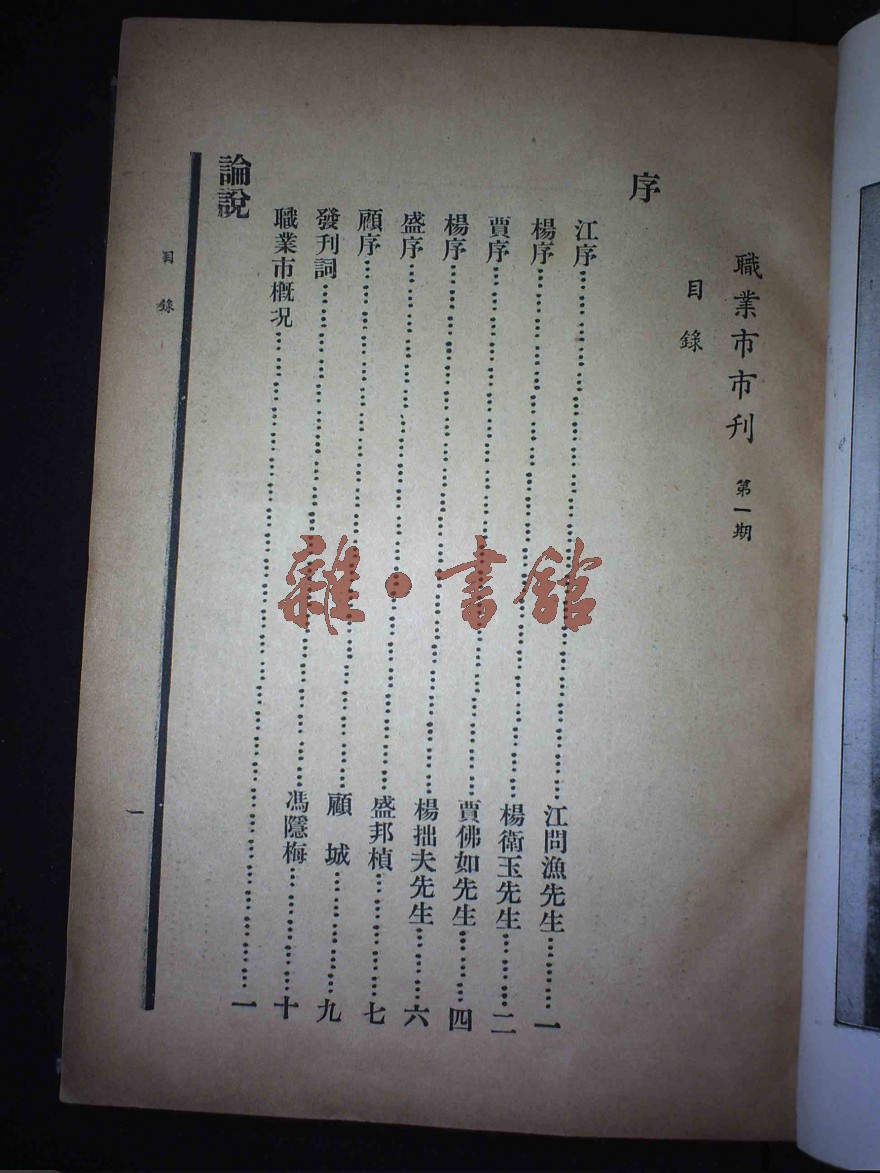 職業市市刊 第一期
目錄
序
江序……江問漁先生……一
楊序……楊衛玉先生……二
賈序……賈佛如先生……四
楊序……楊拙夫先生……六
盛序……盛邦楨……七
顧序……顧城……九
發刊詞……馮隱梅……十
職業市概況……一
論說
目錄
一
雜·書館